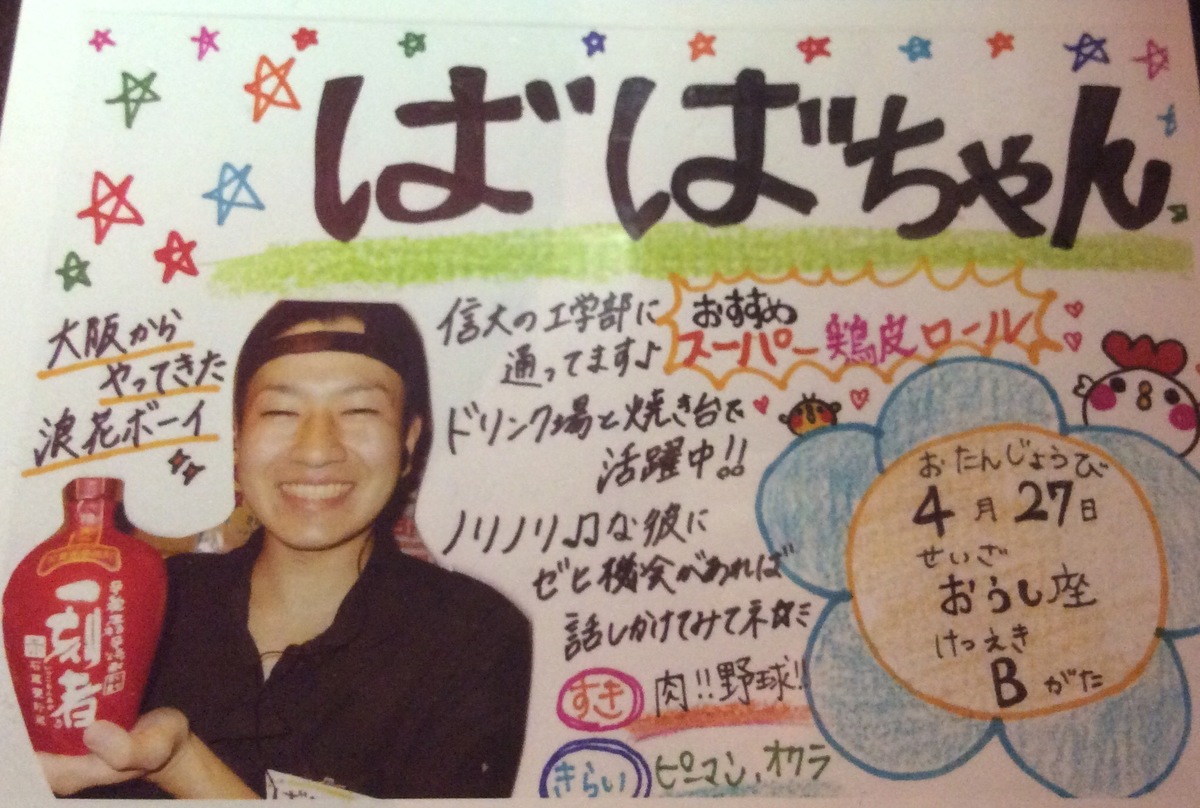 ばばちゃん
大阪から
やってきた
浪花ボーイ
信大の工学部に
通ってます♪
おすすめ
スーパー鶏皮ロール
ドリンク場と焼き台で
活躍中!!
ノリノリ♫な彼に
ゼヒ機会があれば
話しかけてみてネ
すき 肉!!野球!!
きらい ピーマン、オクラ
おたんじょうび
4月27日
せいざ
おうし座
けつえき
Bがた
一刻者
石蔵甕貯蔵